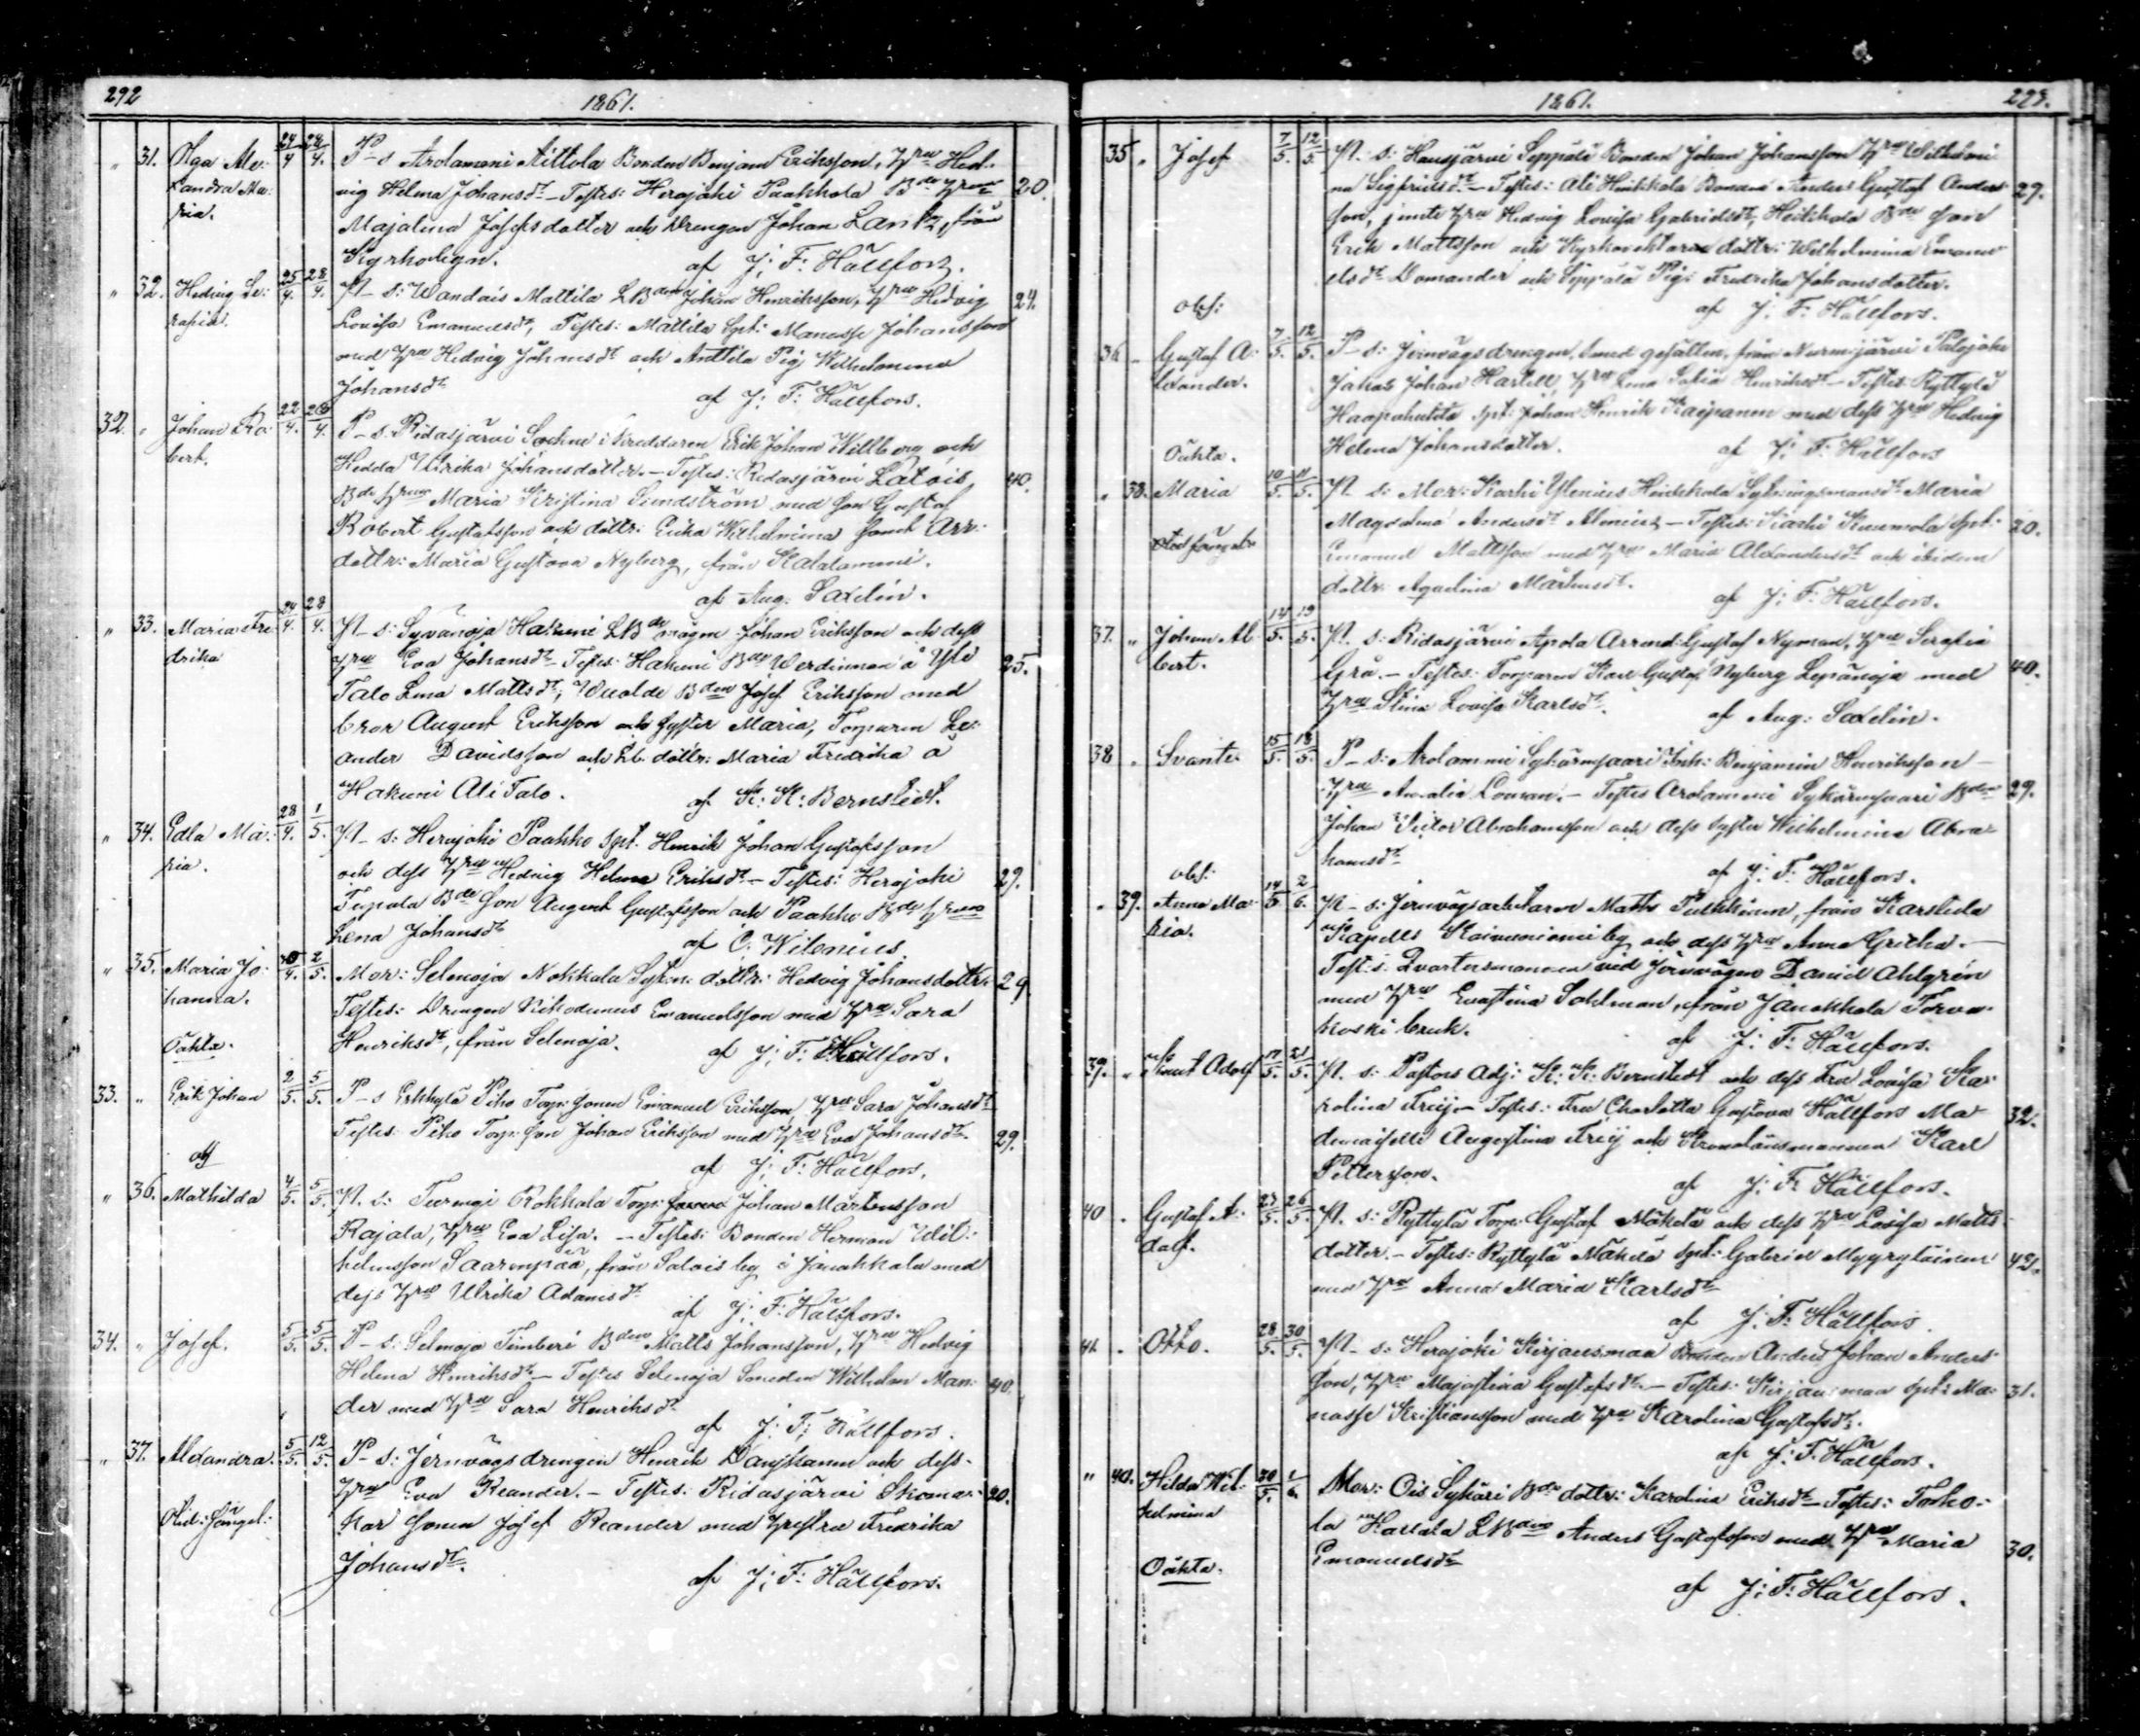 292
1861.
" 31. Olga Alexandra Maria. 24/4 24/4. P-s Arolammi Aittola Bonden Benjam Eriksson, H:ru Hed-
vig Helena Johansdr - Testes: Herajoki Paakkola B:de H:run 20.
Majalena Josefsdotter och Drengen Johan Lantz, från
Kyrkobyn. af J: F: Hällfors.
" 32. Hedvig Se- 25/4. 28/4. P- s: Wandais Mattila LB:den Johan Henriksson, H:ru Hedvig 24.
rafia.
Lovisa Emanuelsdr, Testes: Mattila Spt: Manasse Johansson
med H:ru Hedvig Johansdr och Anttila Pig Wilhelmina
Johansdr af J: F: Hällfors.
32. " Johan Ro- 22/4. 28/4. P- s. Ridasjärvi Sockne Skreddaren Erik Johan Willberg och
bert.
Hedda Ulrika Johansdotter. - Testes: Ridasjärvi Latois 40.
B:de H:run Maria Kristina Sundström med son Gustaf
Robert Gustafsson och dottr: Erika Wilhelmina samt Arr-
dottr: Maria Gustava Nyberg, från Kalalammi.
af Aug. Saxelin.
" 33. Maria Fre- 24/4. 28/4. P- s: Syvänoja Hakuni LB:de mågen Johan Eriksson och dess
drika
H:ru Eva Johansdr Testes: Hakuni B:de Werdinnan å Yli 25.
Talo Lena Mattsdr, B:den Josef Eriksson med
bror August Eriksson och syster Maria, Torparen Le-
ander Davidsson och Lb. dottr: Maria Fredrika å
Hakuni Ali Talo. af K: K: Bernstedt.
" 34. Edla Ma- 28/4. 1/5. P- s: Herajoki Paakko Spt. Henrik Johan Gustafsson
ria.
och dess H:ru Hedvig Helena Eriksdr - Testes: Herajoki 29.
B:de Son August Gustafsson och Paakko B:de H:run
Lena Johansdr af C. Wilenius
" 35. Maria Jo- 2/5. Mor: Selenoja Nokkala dottr: Hedvig Johansdottr. 29.
hanna.
Testes: Drengen Nikodemus Emanuelsson med H:ru Sara
Oäkta. Henriksdr, från Selenoja. af J: F: Hällfors.
33. " Erik Johan 2/5. 5/5. P- s Erkkylä Piho Torp: Sonen Emanuel Eriksson, H:ru Sara Johansdr
Testes: Piho Torp: Son Johan Eriksson med H:ru Eva Johansdr. 29.
af J: F: Hällfors.
" 36. Mathilda 4/5. 5/5. P. s: Turengi Kokkala Torp: Johan Mårtensson
Rajala, H:ru Eva Lisa. - Testes: Bonden Herman Wil-
helmsson Saarenpää, från Salois by i Janakkala med
dess H:ru Ulrika Adamsdr af J: F: Hällfors.
34. " Josef. 5/5. 5/5. P- s: Selenoja Timberi B:den Matts Johansson, H:ru Hedvig
Helena Henriksdr - Testes Selenoja Smeden Wilhelm Man- 40.
der med H:ru Sara Henriksdr
af J: F: Hällfors.
" 37. Alexandra. 5/5. 12/5. P- s: Jernvägsdrengen Henrik Danskanen och dess
H:ru Eva Reander. - Testes: Ridasjärvi Skoma- 20.
kar Sonen Josef Reander med Hustru Fredrika
Johansdr. af J: F: Hällfors.
1861.
293.
35 " Josef 7/5. 12/5. P. s: Hausjärvi Seppälä Bonden Johan Johansson H:ru Wilhelmi-
na Sigfridsdr - Testes: Ali Heikkala Bonden Anders Gustaf Anders- 29.
son, jemte H:ru Hedvig Lovisa Gabrielsdr, Heikkala B:de Son
Erik Mattsson och Kyrkovektaren dottr: Wilhelmina Emanu-
elsdr Domander och Seppälä Pig: Fredrika Johansdotter.
obs: af J: F: Hällfors.
36 - Gustaf A- 7/5. 12/5. P- s: Jernvägsdrengen, smed gesällen, från Nurmijärvi Palojoki
lexander.
Johan Hartell, H:ru Lena Sofia Henriksdr - Testes: Ryttylä
Haapahuhta Spt: Johan Henrik Kaipanen med dess H:ru Hedvig
Oäkta. Helena Johansdotter. af J: F: Hällfors
" 38. Maria 10/5. 11/5. P. s: Mor: Karhi Heikkala Maria
Magdalena Andersdr Alenius - Testes: Karhi Kuumola Spt: 20.
Emanuel Mattsson med H:ru Maria Alexandersdr och ibidem
dottr: Agalina Mårtensdr. af J: F: Hällfors.
37. " Johan Al- 14/5. 19/5. P. s: Ridasjärvi Apola Arrend: Gustaf Nyman, H:ru Serafia
bert.
Grå. - Testes: Torparen Karl Gustaf Nyberg Lepänoja med 40.
H:ru Stina Lovisa Karlsdr. af Aug: Saxelin.
38 " Svante. 15/5. 18/5. P- s: Arolammi Sykärinsaari Inh: Benjamin Henriksson -
H:ru Amalia Loman. - Testes Arolammi Sykärinsaari B:den 29.
Johan Victor Abrahamsson och dess syster Wilhelmina Abra-
hamsdr
obs: af J: F: Hällfors.
" 39. Anna Ma- 14/5 2/6. P- s: Jernvägsarbetaren Matts Pulkkinen, från Karstula
ria.
Kapells by och dess H:ru Anna Greta. -
Test:s: Qvartersmannen vid Jernvägen David Ahlgrén
med H:ru Evastina Sahlman, från Janakkala Terva-
koski bruk. af J: F: Hällfors.
39. " Knut Adolf 17/5. 21/5. P. s: Pastors Adj: K: K: Bernstedt och dess Fru Lovisa Ka-
rolina Freij - Testes: Fru Charlotta Gustava Hällfors Ma- 32.
demoiselle Augustina Freij och Kronolänsmannen Karl
Pettersson. af J: F. Hällfors.
40 . Gustaf A- 23/5. 26/5. P. s: Ryttylä Torp: Gustaf Mäkelä och dess H:ru Lovisa Matts
dolf.
dotter. - Testes: Ryttylä Mäkelä Spt: Gabriel Myyryläinen 42.
med H:ru Anna Maria Karlsdr
af J: F. Hällfors.
41 . Otto. 28/5. 30/5. P- s: Herajoki Kirjansmaa Bonden Anders Johan Anders-
son, H:ru Majastina Gustafsdr. - Testes: Kirjansmaa Spt: Ma- 31.
nasse Kristiansson med H:ru Karolina Gustafsdr.
af J: F. Hällfors.
" 40. Hilda Wil- 30/5. 1/6. Mor: Ois Sykäri B:de dottr: Karolina Eriksdr - Testes: Torho-
helmina
la Hattala LB:den Anders Gustafsson med H:ru Maria 30.
Oäkta. Emanuelsdr
af J: F: Hällfors.